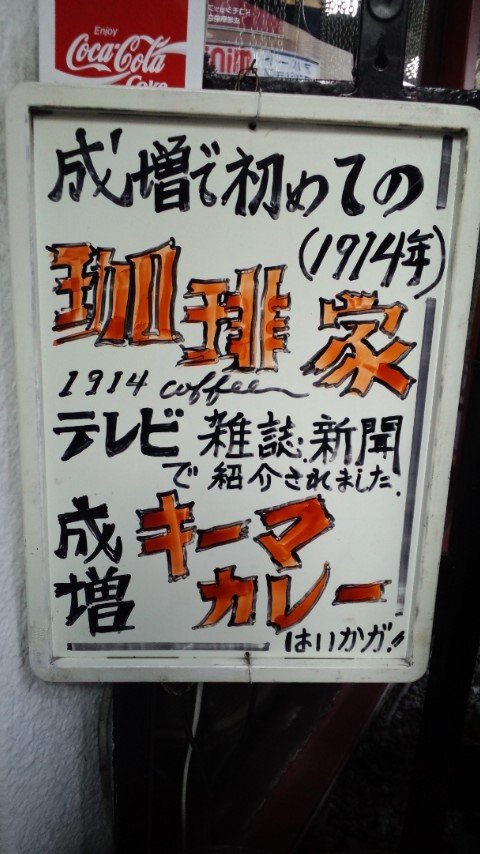 Enjoy
Coca-Cola
Coke
mini
成増で初めての
(1914年)
珈琲家
1914 coffee
テレビ雑誌.新聞
で紹介されました.
成増
キーマ
カレー
はいかが!!